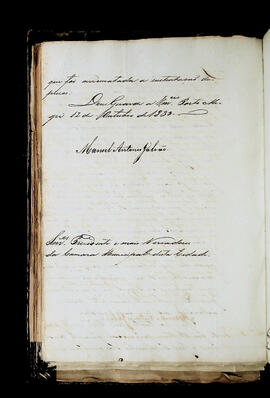 que foi arrematada a
Deus Guarde a Vm.ces Porto Ale-
gre 12 de Outubro de 1832.
Manoel Antonio Galvão
Snr.es Presidente e mais Vereadores
da Camara Municipal desta Cidade.